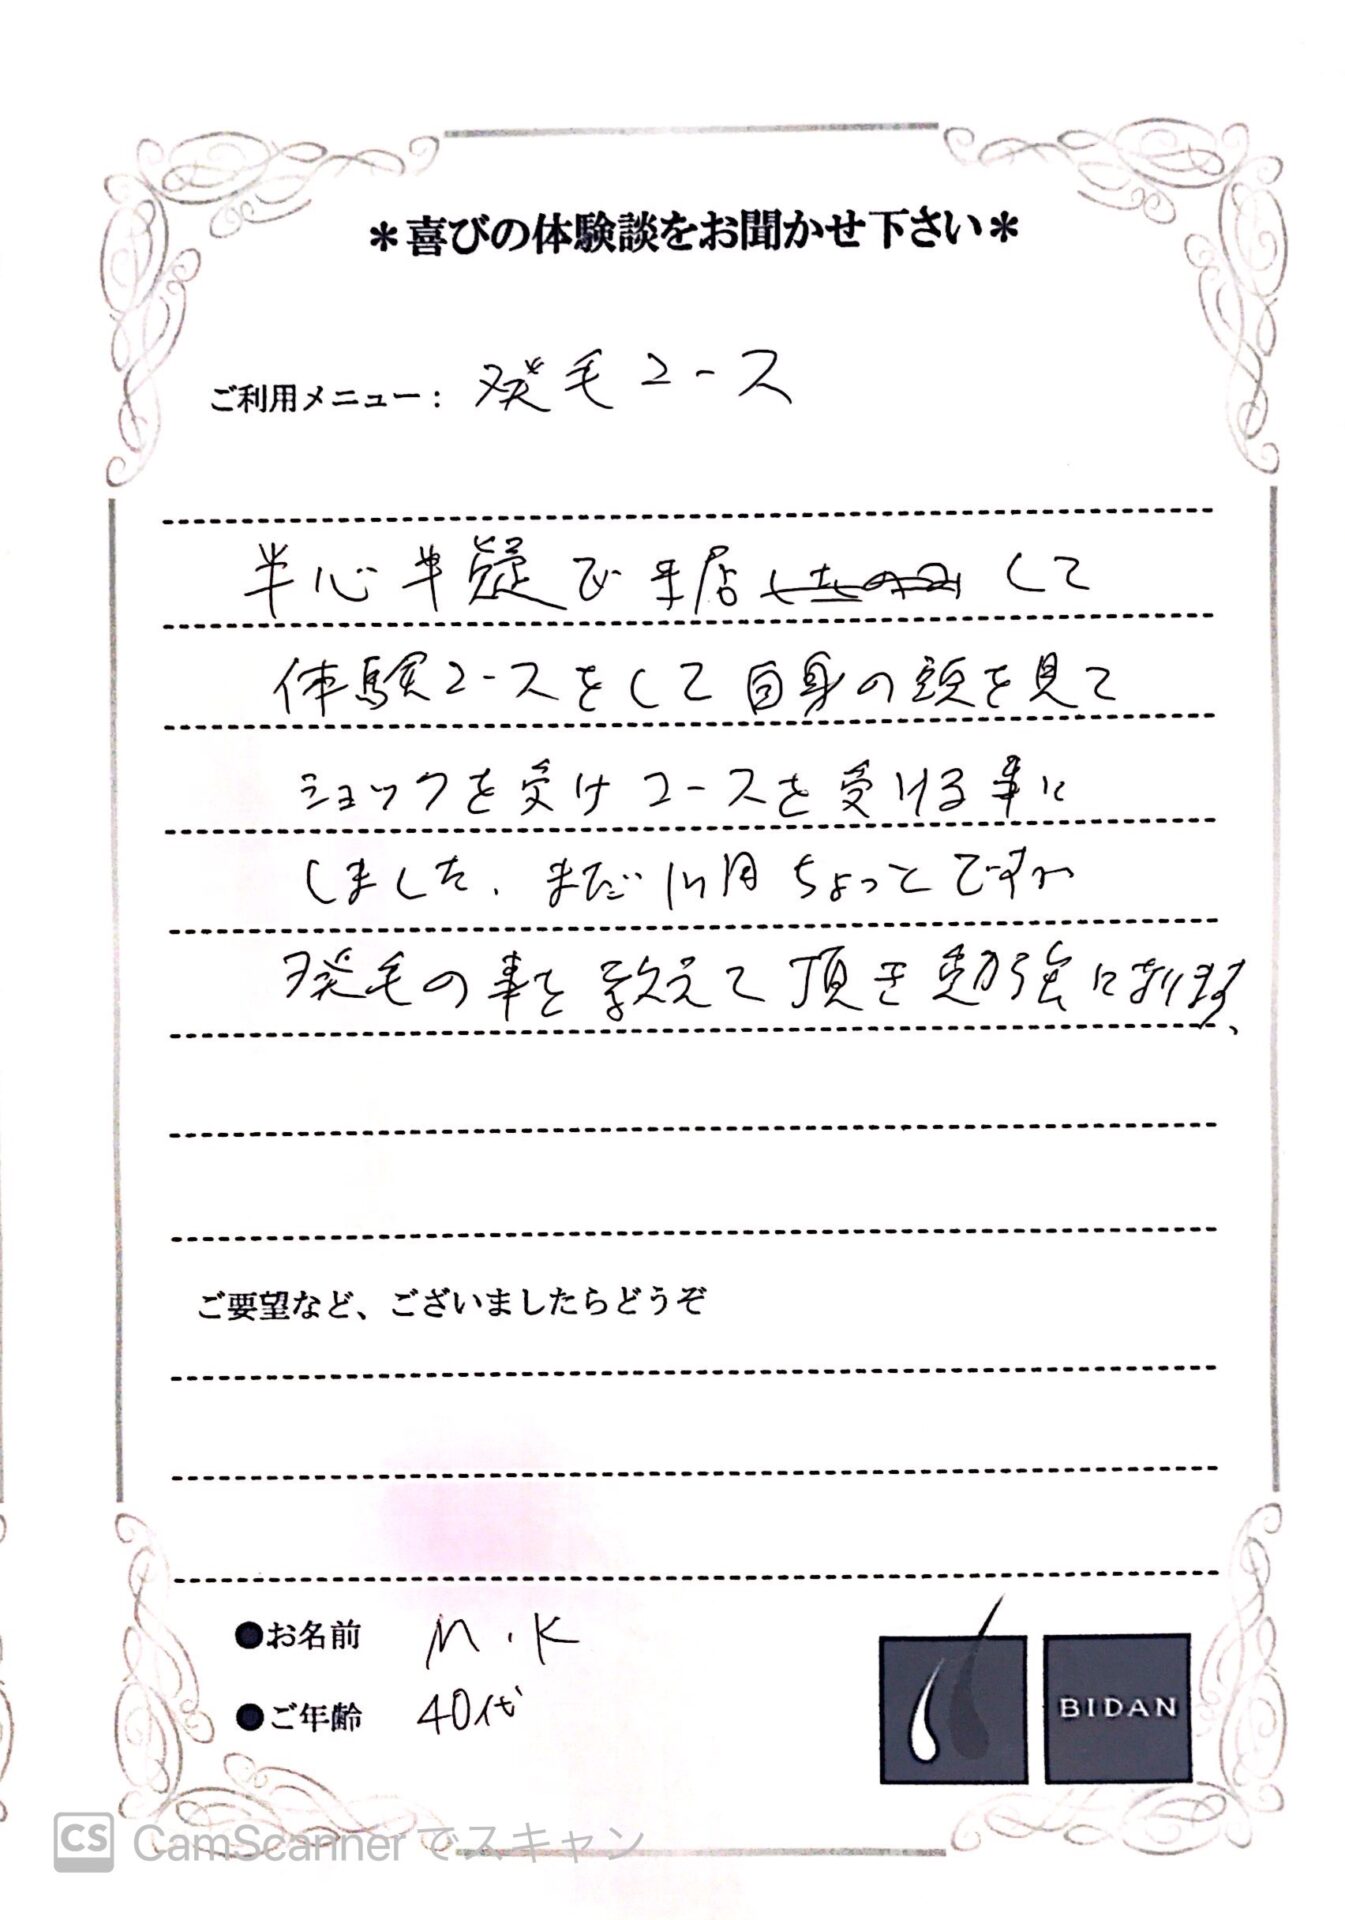 ＊喜びの体験談をお聞かせ下さい＊
ご利用メニュー： 発毛コース
半心半疑で来店して
体験コースをして自身の頭を見て
ショックを受けコースを受ける事に
しました、まだ1ヶ月ちょっとですが
発毛の事を教えて頂き勉強になります、
ご要望など、ございましたらどうぞ
●お名前 M.K
●ご年齢 40代
BIDAN
CS CamScannerでスキャン